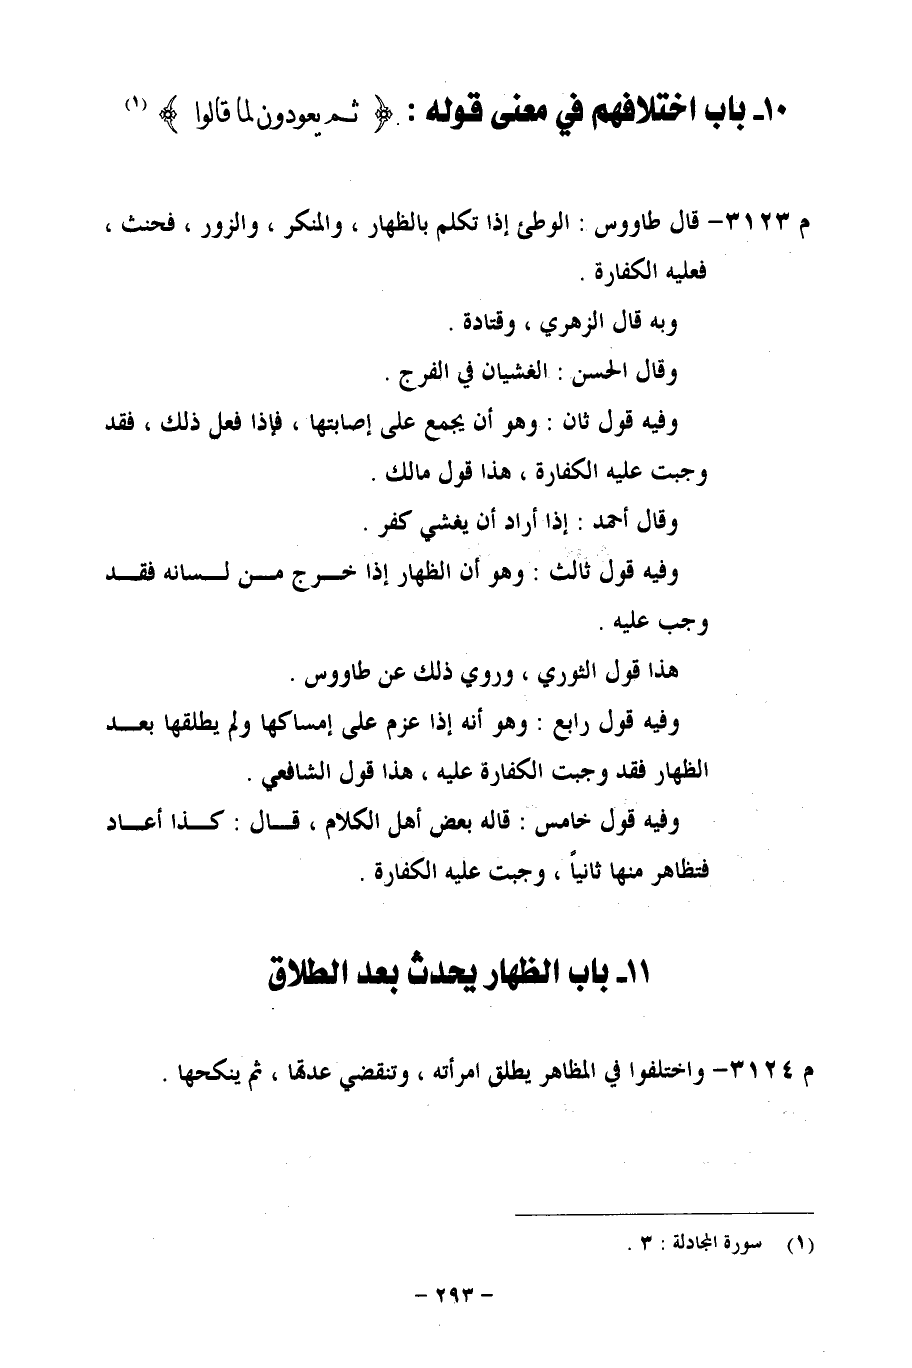 ١٠ـ باب اختلافهم في معنى قوله : ﴿ ثم يعودون لما قالوا ﴾ (١)
م ٣١٢٣– قال طاووس : الوطئ إذا تكلم بالظهار ، والمنكر ، والزور ، فحنث ،
فعليه الكفارة .
وبه قال الزهري ، وقتادة .
وقال الحسن : الغشيان في الفرج .
وفيه قول ثان : وهو أن يجمع على إصابتها ، فإذا فعل ذلك ، فقد
وجبت عليه الكفارة ، هذا قول مالك .
وقال أحمد : إذا أراد أن يغشي كفر .
وفيه قول ثالث : وهو أن الظهار إذا خـــرج مـــن لـــسانه فقـــد
وجب عليه .
هذا قول الثوري ، وروي ذلك عن طاووس .
وفيه قول رابع : وهو أنه إذا عزم على إمساكها ولم يطلقها بعـــد
الظهار فقد وجبت الكفارة عليه ، هذا قول الشافعي .
وفيه قول خامس : قاله بعض أهل الكلام ، قـــال : كـــذا أعـــاد
فتظاهر منها ثانياً ، وجبت عليه الكفارة .
١١ـ باب الظهار يحدث بعد الطلاق
م ٣١٢٤– واختلفوا في المظاهر يطلق امرأته ، وتنقضي عدتها ، ثم ينكحها .
(١) سورة المجادلة : ٣ .
– ٢٩٣ –